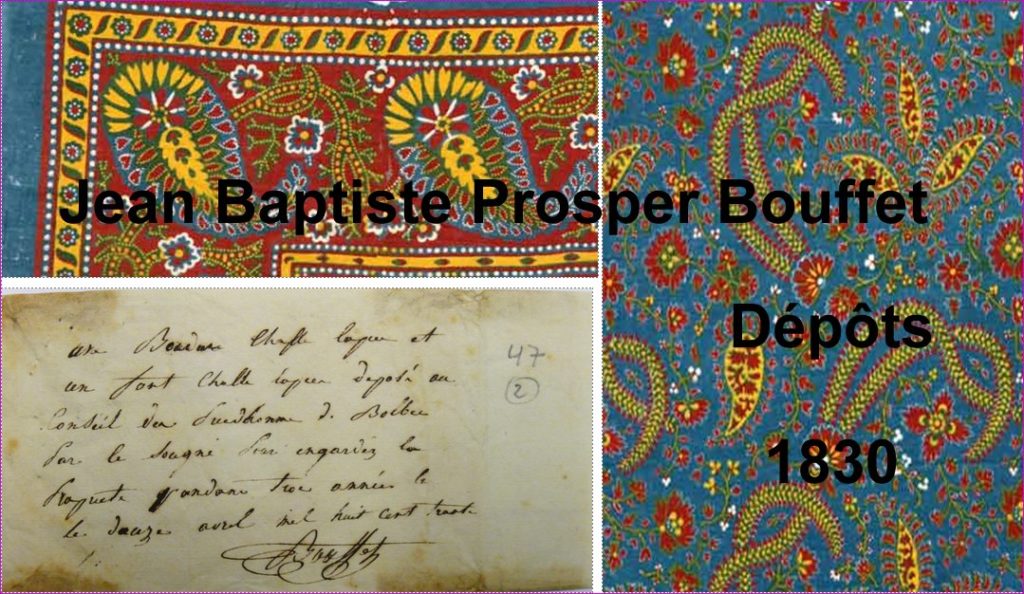 Jean Baptiste Prosper Bouffet
Dépôts
1830
une Bordure Challe lapie et
un font Challe lapie deposé au
Conseil des Prudhomme de Bolbec
Par le sougné Pour engardér la
Propriete pandant troi années le
le douze avrel mel huit cent trente
Bouffet
47
2